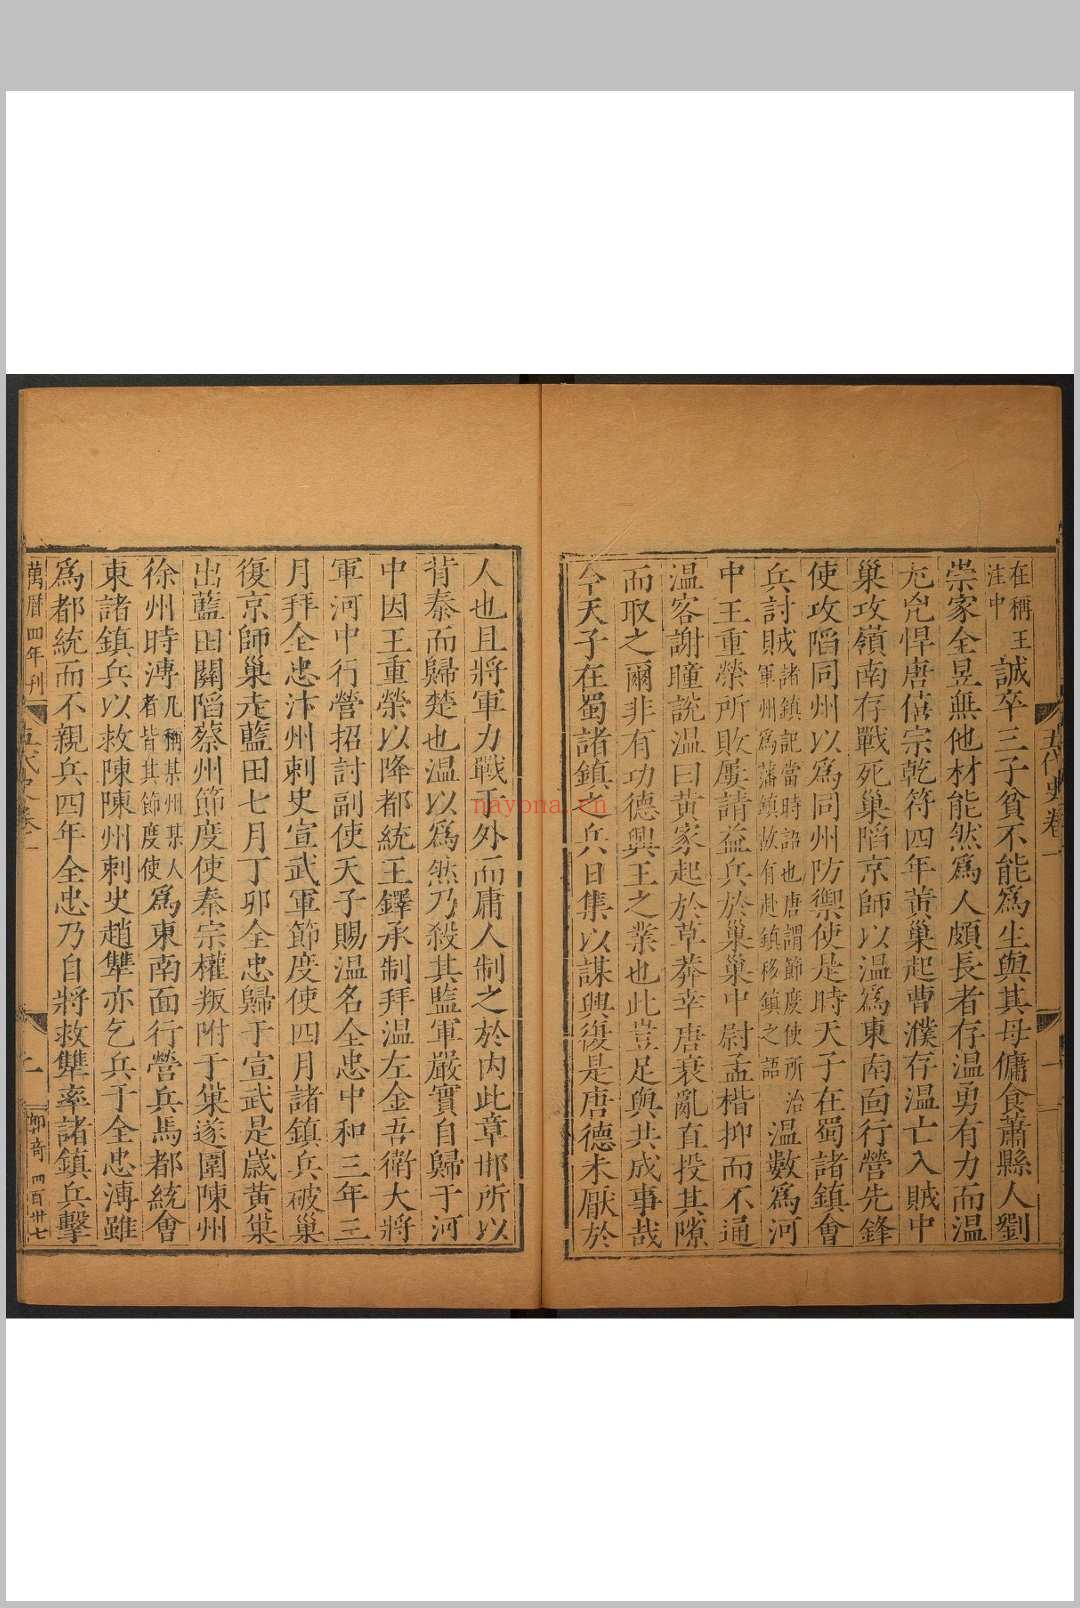 在稱王注中誠卒三子貧不能爲生與其母傭食蕭縣人劉
崇家全昱無他材能然爲人頗長者存温勇有力而温
尤兇悍唐僖宗乾符四年黄巢起曹濮存温亡入賊中
巢攻嶺南存戰死巢陷京師以温爲東南面行營先鋒
使攻陷同州以爲同州防禦使是時天子在蜀諸鎮會
兵討賊諸鎮記當時語也唐謂節度使所治軍州爲藩鎮故有赴鎮移鎮之語温數爲河
中王重榮所敗屢請益兵於巢巢中尉孟楷抑而不通
温客謝瞳説温曰黄家起於草莽幸唐衰亂直投其隙
而取之爾非有功德興王之業也此豈足與共成事哉
今天子在蜀諸鎮之兵日集以謀興復是唐德未厭於
五代史卷一
一
人也且將軍力戰于外而庸人制之於内此章邯所以
背秦而歸楚也温以爲然乃殺其監軍嚴實自歸于河
中因王重榮以降都統王鐸承制拜温左金吾衛大將
軍河中行營招討副使天子賜温名全忠中和三年三
月拜全忠汴州刺史宣武軍節度使四月諸鎮兵破巢
復京師巢走藍田七月丁卯全忠歸于宣武是歲黄巢
出藍田關陷蔡州節度使秦宗權叛附于巢遂圍陳州
徐州時溥凡稱某州某人者皆其節度使爲東南面行營兵馬都統會
東諸鎮兵以救陳陳州刺史趙犨亦乞兵于全忠溥雖
爲都統而不親兵四年全忠乃自將救犨率諸鎮兵擊
萬曆四年刊
五代史卷一
二
郭奇
四百卅七
nayona.cn